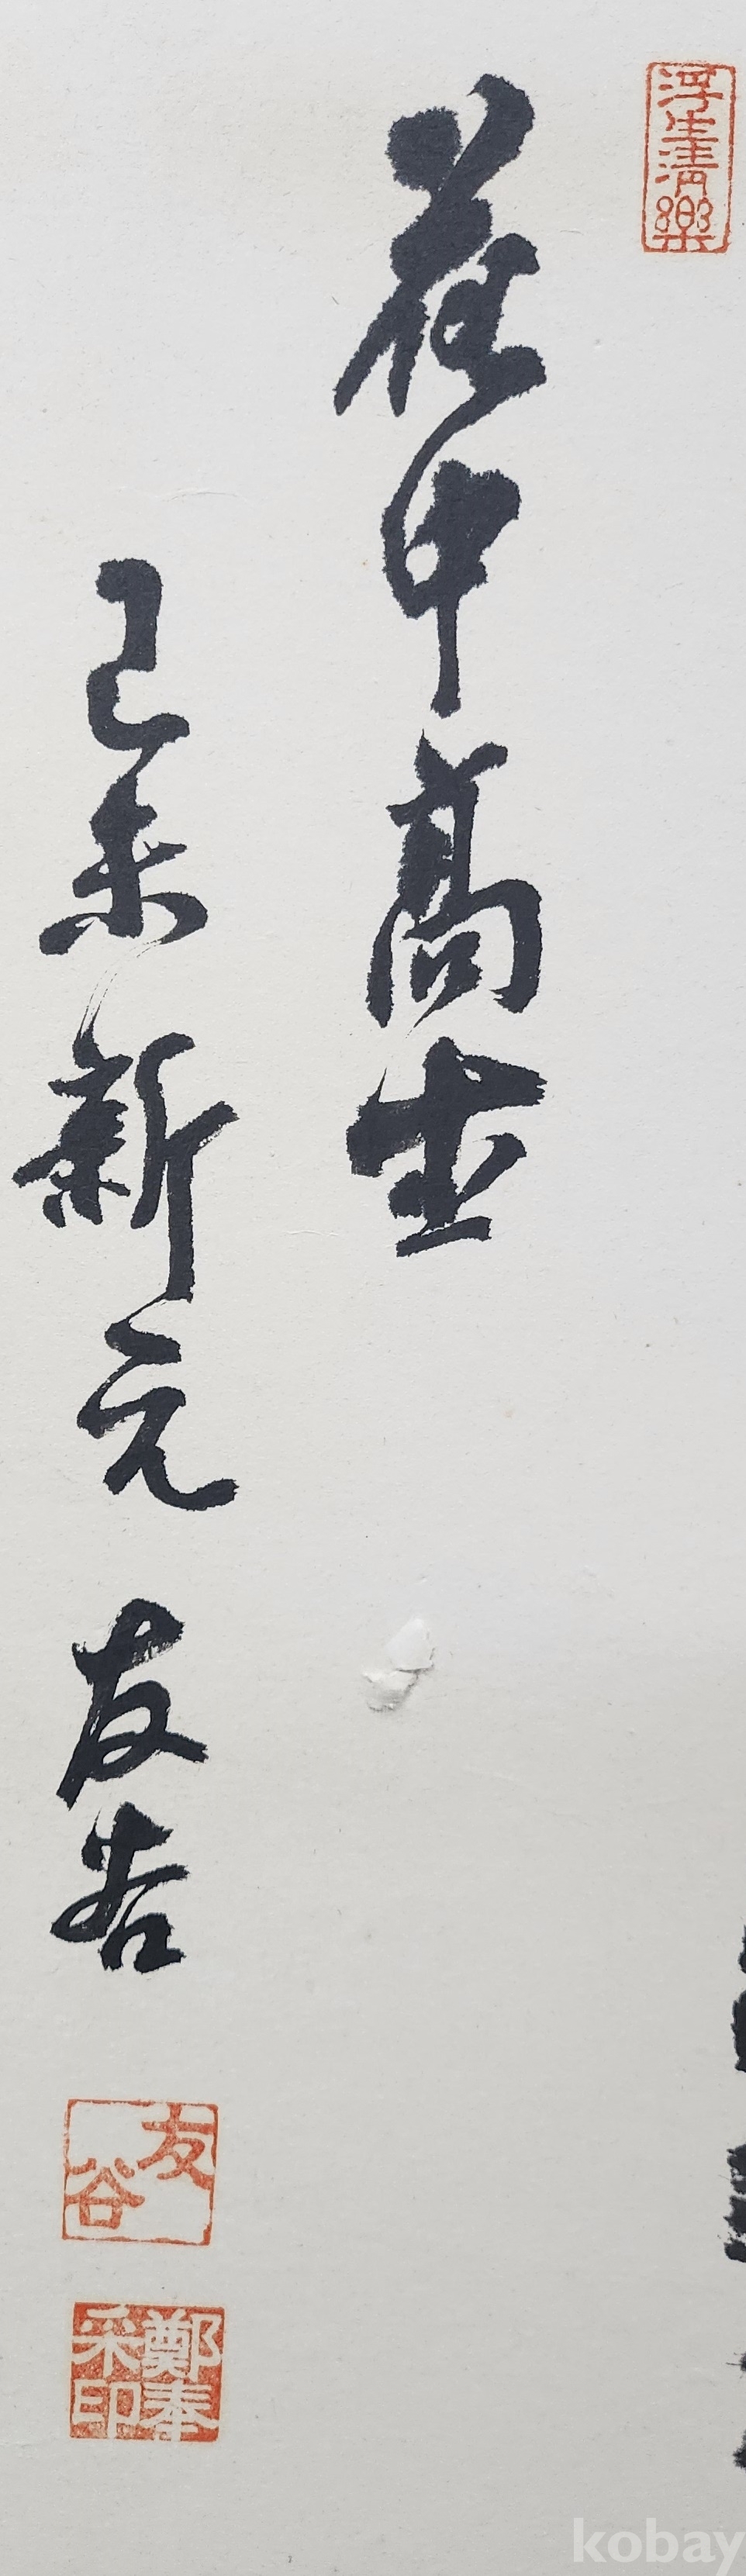 浮生清樂
花中高士
己未新元 友谷
友谷
鄭奉采印
kobay